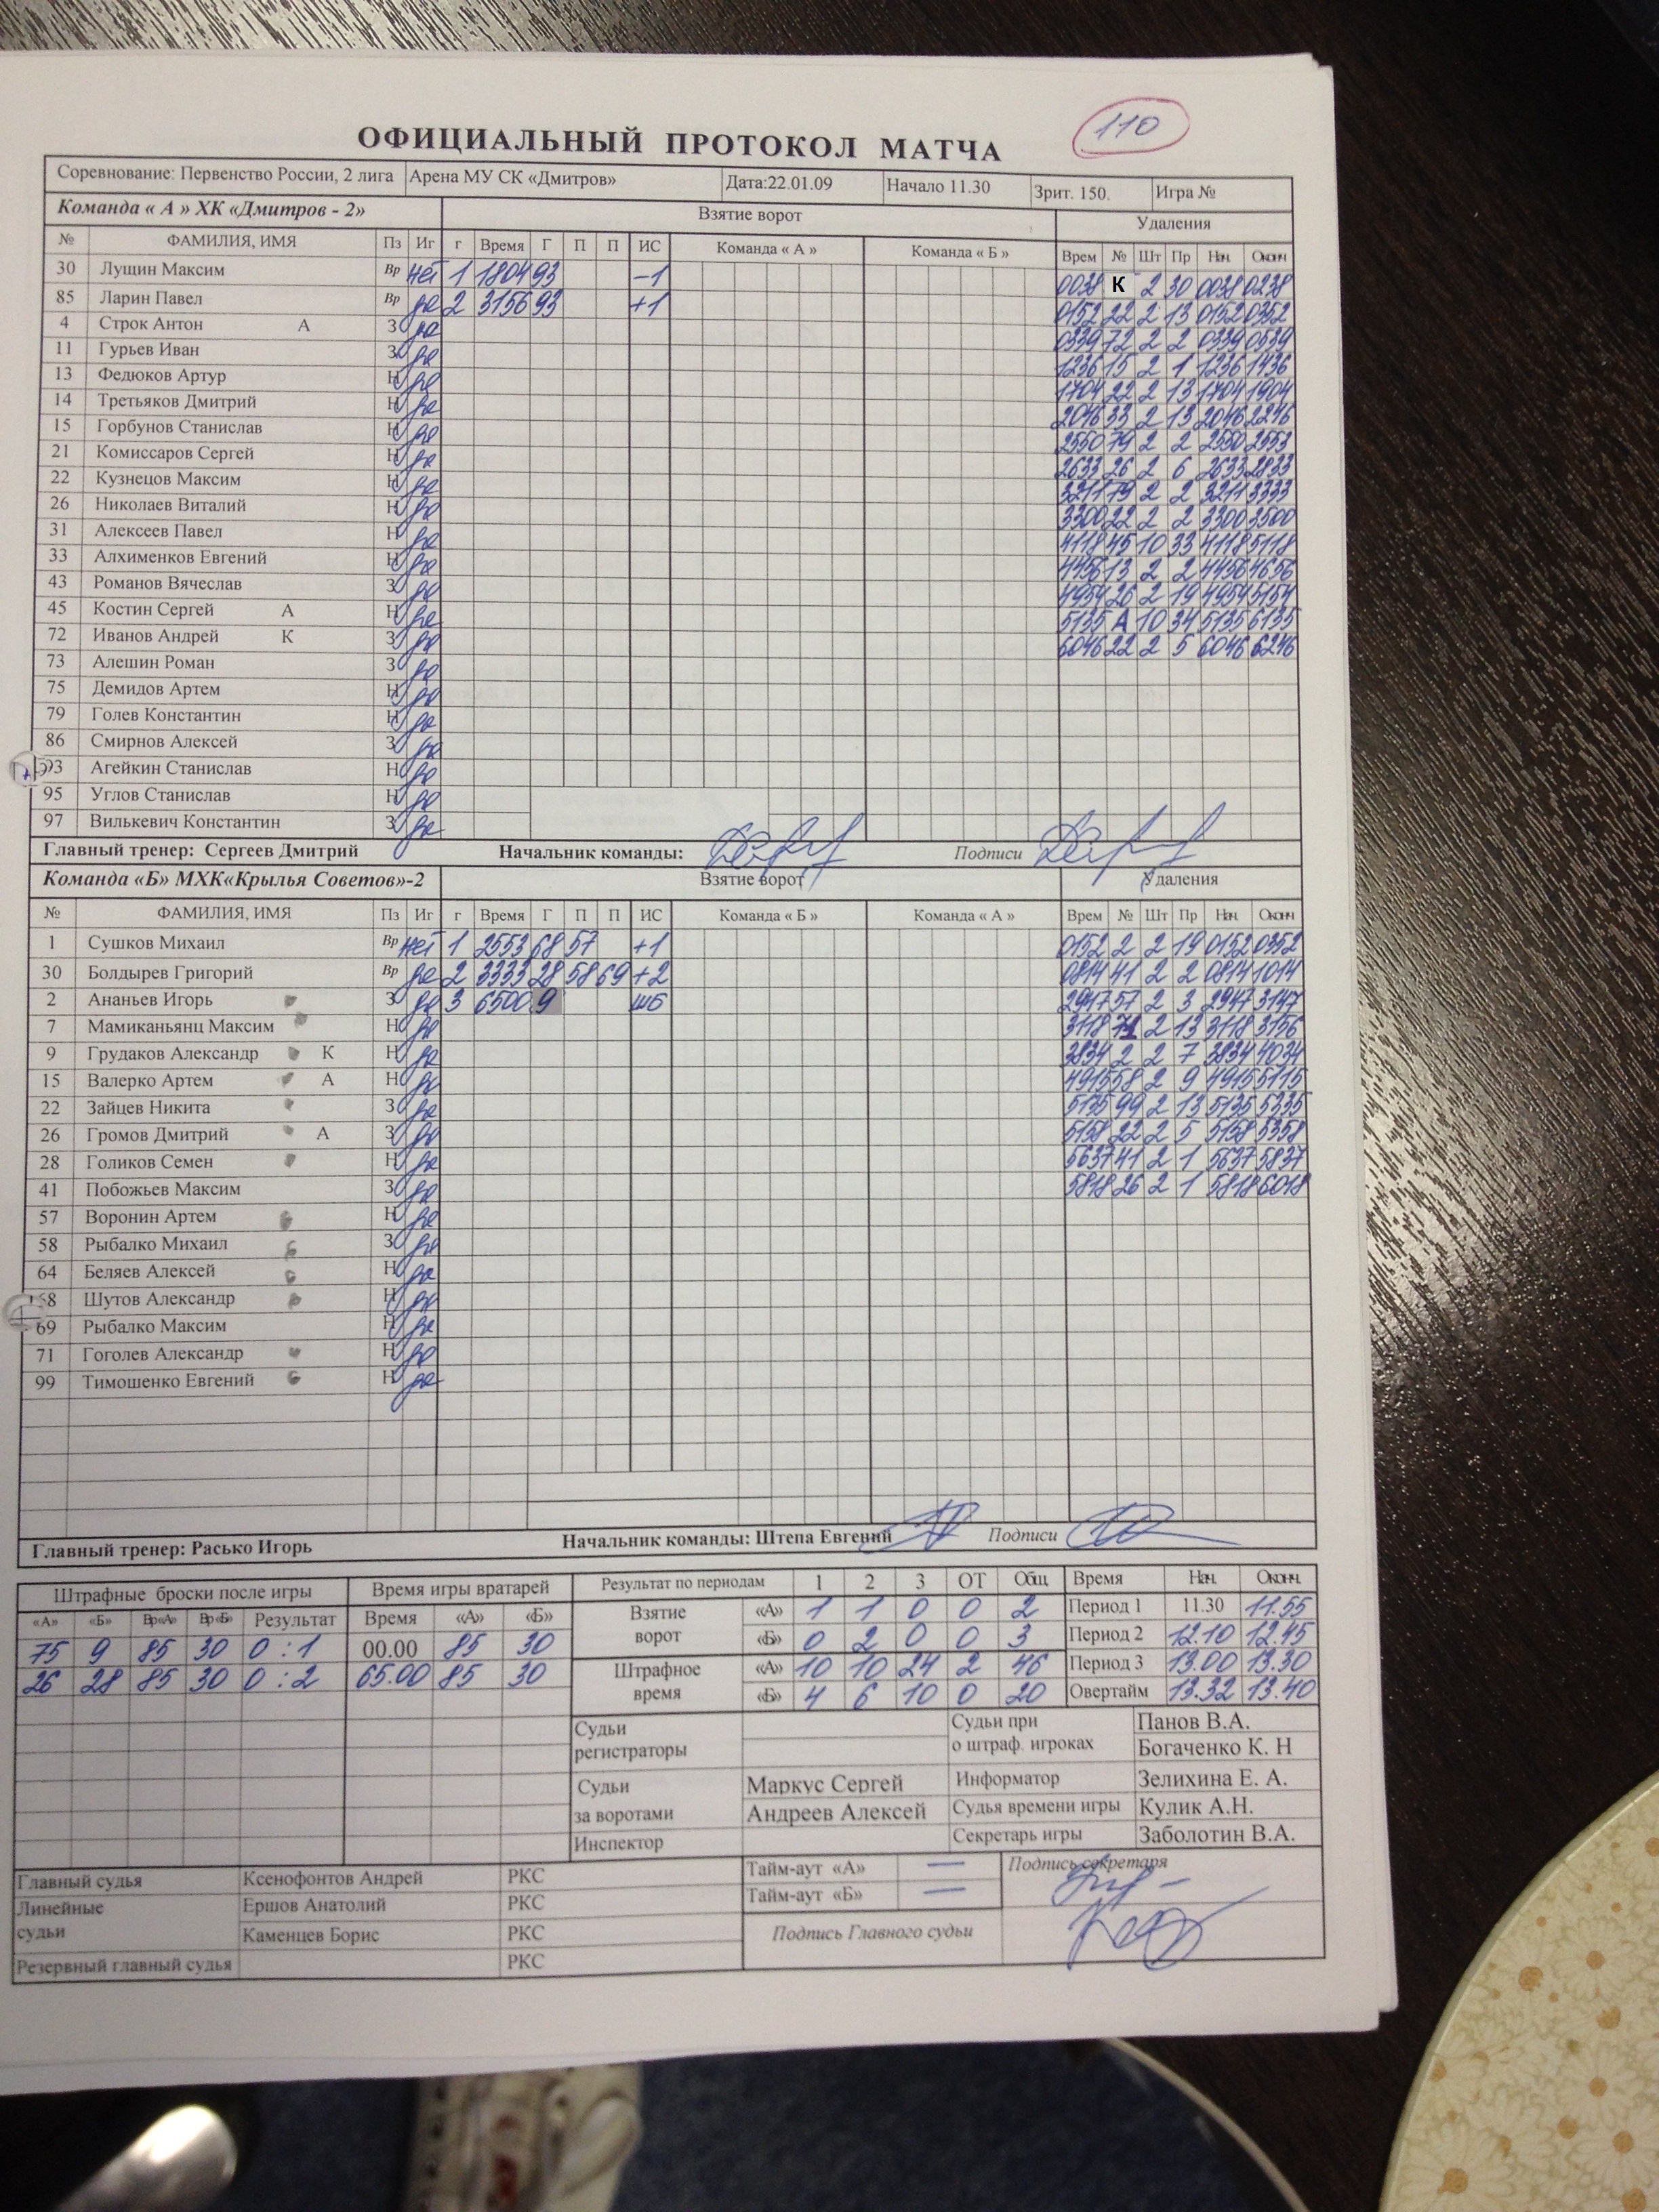 110
ОФИЦИАЛЬНЫЙ ПРОТОКОЛ МАТЧА
Соревнование: Первенство России, 2 лига Арена МУ СК «Дмитров» Дата:22.01.09 Начало 11.30 Зрит. 150. Игра №
Команда « А » ХК «Дмитров - 2» Взятие ворот Удаления
№ ФАМИЛИЯ, ИМЯ Пз Иг г Время Г П П ИС Команда « А » Команда « Б » Врем № Шт Пр Нач. Оконч
30 Лущин Максим Вр нет 1 1804 93 -1 0038 К 2 30 0038 0238
85 Ларин Павел Вр да 2 3156 93 +1 0152 22 2 13 0152 0352
4 Строк Антон А З да 0339 72 2 2 0339 0539
11 Гурьев Иван З да 1236 15 2 1 1236 1436
13 Федюков Артур Н да 1704 22 2 13 1704 1904
14 Третьяков Дмитрий Н да 2046 33 2 13 2046 2246
15 Горбунов Станислав Н да 2550 79 2 2 2550 2553
21 Комиссаров Сергей Н да 2633 26 2 6 2633 2833
22 Кузнецов Максим Н да 3211 79 2 2 3211 3333
26 Николаев Виталий Н да 3300 22 2 2 3300 3500
31 Алексеев Павел Н да 4118 45 10 33 4118 5118
33 Алхименков Евгений Н да 4456 13 2 2 4456 4656
43 Романов Вячеслав З да 4954 26 2 19 4954 5154
45 Костин Сергей А Н да 5135 А 10 34 5135 6135
72 Иванов Андрей К З да 6046 22 2 5 6046 6246
73 Алешин Роман З да
75 Демидов Артем Н да
79 Голев Константин Н да
86 Смирнов Алексей З да
93 Агейкин Станислав Н да
95 Углов Станислав Н да
97 Вилькевич Константин З да
Главный тренер: Сергеев Дмитрий Начальник команды: Подписи
Команда «Б» МХК«Крылья Советов»-2 Взятие ворот Удаления
№ ФАМИЛИЯ, ИМЯ Пз Иг г Время Г П П ИС Команда « Б » Команда « А » Врем № Шт Пр Нач. Оконч
1 Сушков Михаил Вр нет 1 2553 68 57 +1 0152 2 2 19 0152 0352
30 Болдырев Григорий Вр да 2 3333 28 58 69 +2 0814 41 2 2 0814 1014
2 Ананьев Игорь З да 3 6500 9 шб 2947 57 2 3 2947 3147
7 Мамиканьянц Максим Н да 3118 71 2 13 3118 3156
9 Грудаков Александр К Н да 3834 2 2 7 3834 4034
15 Валерко Артем А Н да 4915 58 2 9 4915 5115
22 Зайцев Никита З да 5135 99 2 13 5135 5335
26 Громов Дмитрий А З да 5158 22 2 5 5158 5358
28 Голиков Семен Н да 5637 41 2 1 5637 5837
41 Побожьев Максим З да 5818 26 2 1 5818 6018
57 Воронин Артем Н да
58 Рыбалко Михаил З да
64 Беляев Алексей Н да
68 Шутов Александр Н да
69 Рыбалко Максим Н да
71 Гоголев Александр Н да
99 Тимошенко Евгений Н да
Главный тренер: Расько Игорь Начальник команды: Штепа Евгений Подписи
Штрафные броски после игры Время игры вратарей Результат по периодам 1 2 3 ОТ Общ Время Нач. Оконч.
«А» «Б» Вр«А» Вр«Б» Результат Время «А» «Б» Взятие ворот «А» 1 1 0 0 2 Период 1 11.30 11.55
75 9 85 30 0 : 1 00.00 85 30 «Б» 0 2 0 0 3 Период 2 12.10 12.45
26 28 85 30 0 : 2 65.00 85 30 Штрафное время «А» 10 10 24 2 46 Период 3 13.00 13.30
«Б» 4 6 10 0 20 Овертайм 13.32 13.40
Судьи регистраторы Судьи при о штраф. игроках Панов В.А.
Богаченко К. Н
Судьи за воротами Маркус Сергей Информатор Зелихина Е. А.
Андреев Алексей Судья времени игры Кулик А.Н.
Инспектор Секретарь игры Заболотин В.А.
Главный судья Ксенофонтов Андрей РКС Тайм-аут «А» — Подпись секретаря
Линейные судьи Ершов Анатолий РКС Тайм-аут «Б» —
Каменцев Борис РКС Подпись Главного судьи
Резервный главный судья РКС